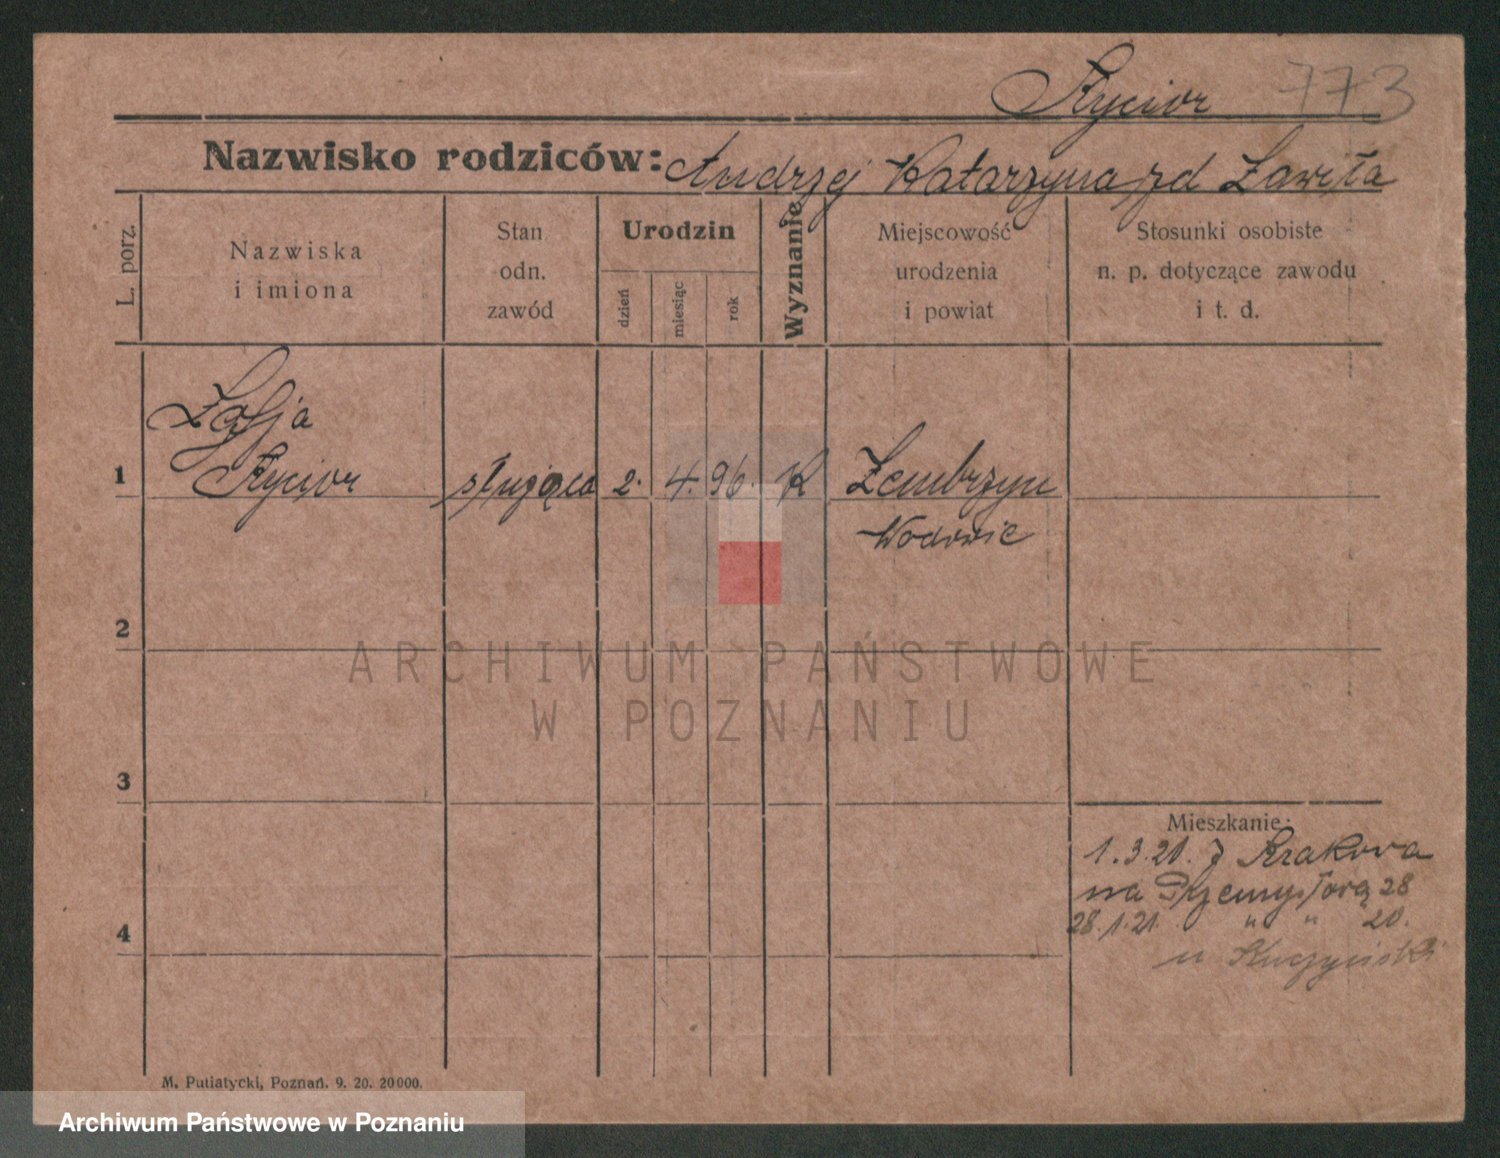 Rycior 773
Nazwisko rodziców: Andrzej Katarzyna zd Zawiła
L. porz.
Nazwiska
i imiona
Stan
odn.
zawód
Urodzin
dzień
miesiąc
rok
Wyznanie
Miejscowość
urodzenia
i powiat
Stosunki osobiste
n. p. dotyczące zawodu
i t. d.
Zofja
1 Rycior służąca 2. 4. 96. K Zembrzyn
Wadowic
2
3
4
Mieszkanie:
1.3.21. z Krakowa
na Przemysłową 28
28.1.21. " " 20.
u Kuczyński
M. Putiatycki, Poznań. 9. 20. 20000.
ARCHIWUM PAŃSTWOWE
W POZNANIU
Archiwum Państwowe w Poznaniu